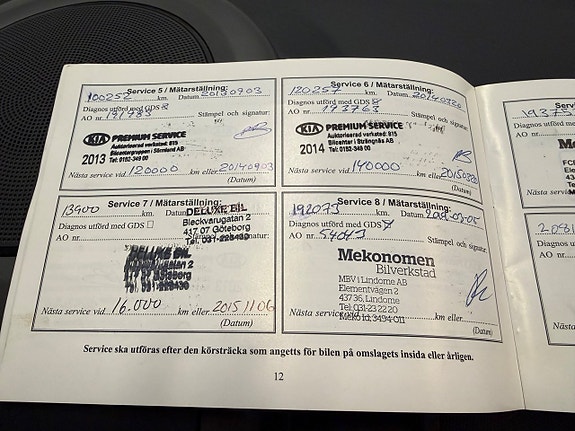 Service 5 / Mätarställning:
100257 km. Datum 20130903
Diagnos utförd med GDS
AO nr. 191783 Stämpel och signatur:
KIA PREMIUM SERVICE
Auktoriserad verkstad: 815
Bilcentergruppen i Sörmland AB
2013 Tel: 0152-349 00
Nästa service vid 120000 km eller 20140903
(Datum)
Service 6 / Mätarställning:
120257 km. Datum 20140320
Diagnos utförd med GDS
AO nr. 193763 Stämpel och signatur:
KIA PREMIUM SERVICE
Auktoriserad verkstad: 815
Bilcenter i Strängnäs AB
2014 Tel: 0152-349 00
Nästa service vid 140000 km eller 20150320
(Datum)
Service 7 / Mätarställning:
13900 km. Datum
DELUXE BIL
Bleckvarugatan 2
417 07 Göteborg
Tel. 031-228430
Diagnos utförd med GDS
AO nr.
DELUXE BIL
Nästa service vid 16.000 km eller 20151106
(Datum)
Service 8 / Mätarställning:
192073 km. Datum
Diagnos utförd med GDS
AO nr. Stämpel och signatur:
Mekonomen
Bilverkstad
MBV i Lindome AB
Elementvägen 2
437 36, Lindome
Tel: 031-23 22 20
Nästa service vid km eller
Meko id: 3494-011
(Datum)
Service ska utföras efter den körsträcka som angetts för bilen på omslagets insida eller årligen.
12